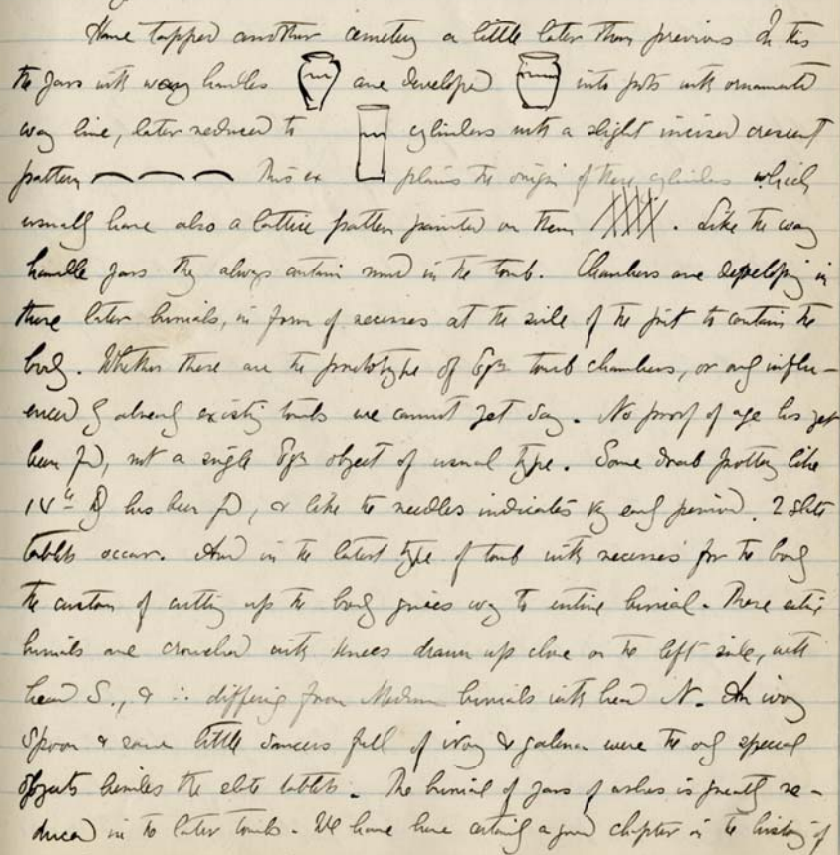 Have tapped another cemetery a little later than previous. In this
the jars with wavy handles are developed into pots with ornamental
wavy line, later reduced to cylinders with a slight incised crescent
pattern This ex plains the origin of these cylinders which
usually have also a lattice pattern painted on them . Like the wavy
handle jars they always contain mud in the tomb. Chambers are developing in
these later burials, in form of recesses at the side of the pit to contain the
body. Whether these are the prototype of Egn tomb chambers, or only influ-
enced by already existing tombs we cannot yet say. No proof of age has yet
been fd, not a single Egn object of usual type. Some drab pottery like
has been fd, & like the needles indicates early period. 2 slate
tablets occur. And in the latest type of tomb with recesses for the body
the custom of cutting up the body gives way to entire burial. These entire
burials are crouched with knees drawn up close on the left side, with
head S., & ∴ differing from Medum burials with head N. An ivory
spoon & some little saucers full of ivory & galena were the only special
objects besides the slate tablets. The burial of jars of ashes is greatly re-
duced in the later tombs. We have here certainly a good chapter in the history of